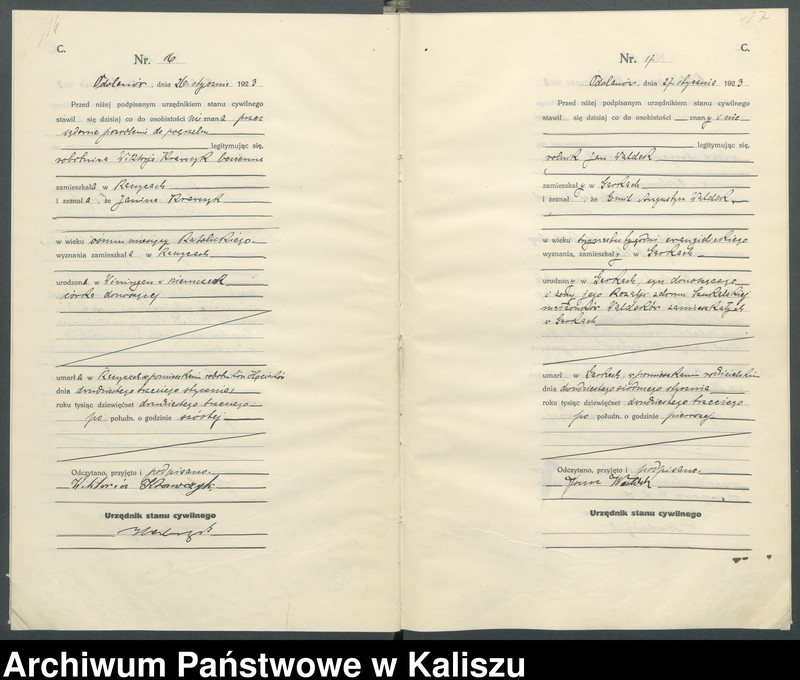 C.
Nr. 16
Odolanów, dnia 26 stycznia 1923
Przed niżej podpisanym urzędnikiem stanu cywilnego
stawił się dzisiaj co do osobistości nie znana przez
sądowne pozwolenie do pogrzebu
legitymując się,
robotnica Wiktorja Krawczyk
zamieszkała w
i zeznała, że Janina Krawczyk
w wieku ośmiu miesięcy Katolickiego
wyznania zamieszkała w
urodzona w Viningen w Niemczech
córka donoszącej
umarła w w pomieszkaniu robotników
dnia dwudziestego trzeciego stycznia
roku tysiąc dziewięćset dwudziestego trzeciego
po połudn. o godzinie szóstej
Odczytano, przyjęto i podpisano.
Wiktoria Krawczyk
Urzędnik stanu cywilnego
17
C.
Nr. 17
Odolanów, dnia 27 stycznia 1923
Przed niżej podpisanym urzędnikiem stanu cywilnego
stawił się dzisiaj co do osobistości znany i nie
legitymując się,
rolnik Jan Waldek
zamieszkały w Gorkach
i zeznał, że Emil Augustyn Waldek
w wieku tygodni ewangielickiego
wyznania, zamieszkały w Gorkach
urodzony w Gorkach, syn donoszącego
i żony jego Rozalji z domu
małżonków Waldeków zamieszkałych
w Gorkach
umarł w Gorkach, w pomieszkaniu rodzicielskim
dnia dwudziestego siódmego stycznia
roku tysiąc dziewięćset dwudziestego trzeciego
po połudn. o godzinie pierwszej
Odczytano, przyjęto i podpisano.
Urzędnik stanu cywilnego
Archiwum Państwowe w Kaliszu